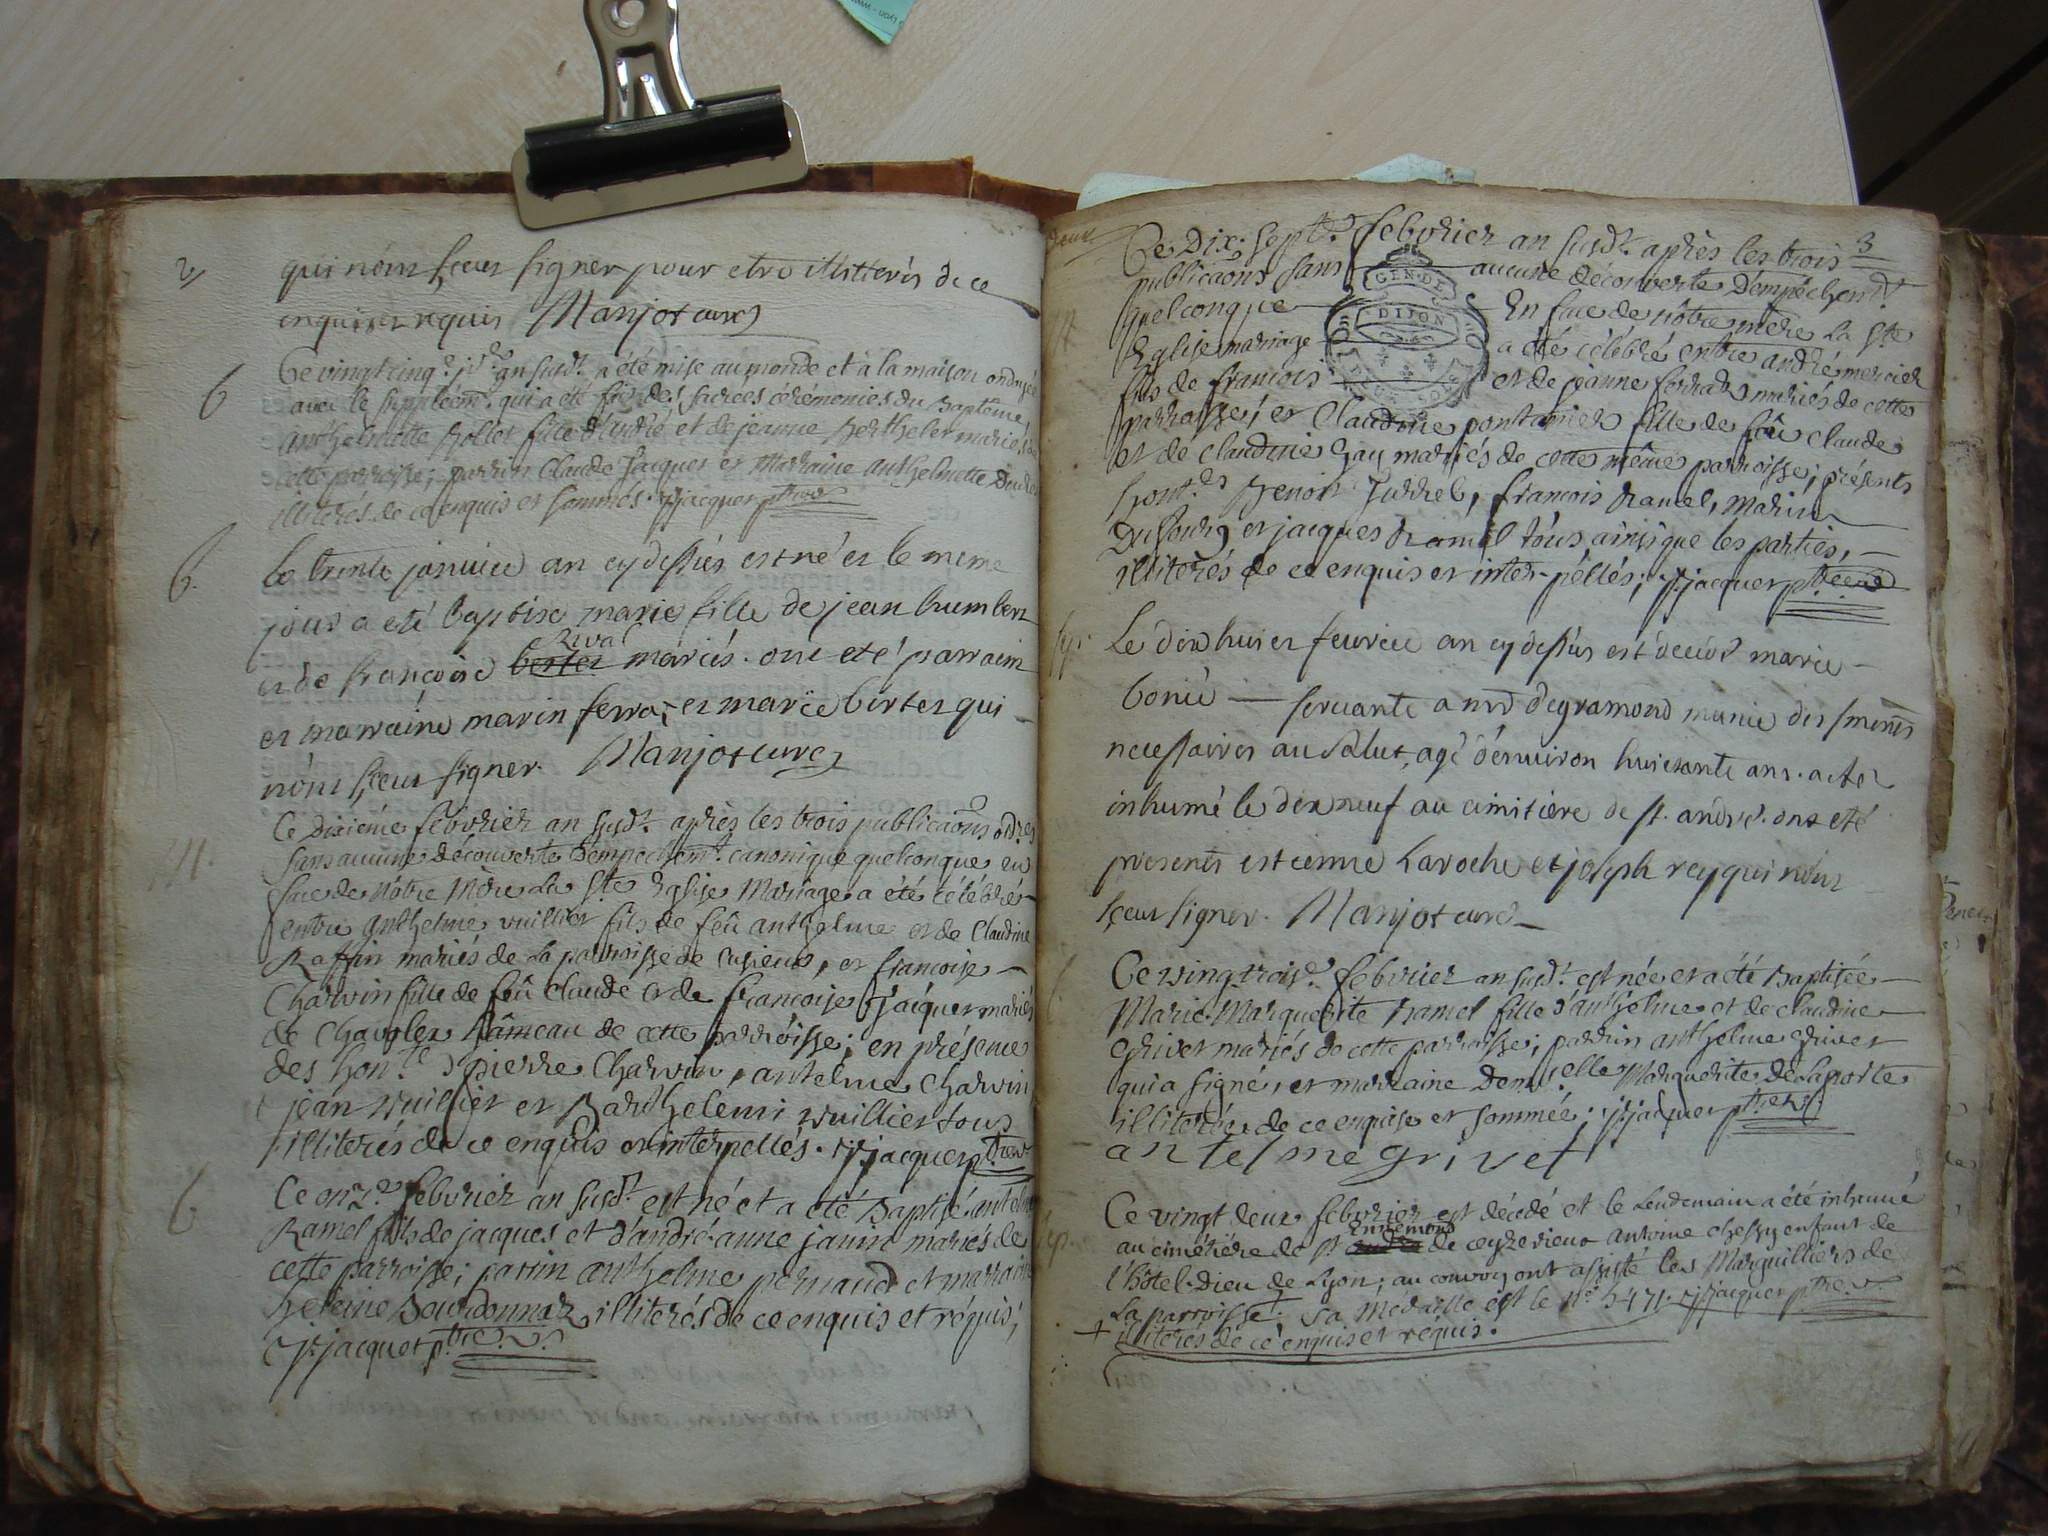 2
qui nônt sçeus signer pour etre illitterés de ce
enquis et requis Manjot curé
b Ce vingt cinq.e j.er an susd.t a été mise au monde et à la maison ondoyée
avec le supplém.t qui a été fait des sacrées cérémonies du Baptême,
anthelmette Rollet fille d'andré et de jeanne Berthelet mariés de
cette parroisse; parrin Claude Jacquet et Marraine anthelmette
illiterés de ce enquis et sommés. jjacquet ptre v
b. Le trente janvier an cy dessus est né et le meme
jour a eté baptisé marie fille de jean humbert
et de françoise berter Rival mariés. ont eté parrain
et marraine marin ferra, et marie berter qui
nônt sçeus signer. Manjot curé
M. Ce dixiéme febvrier an susd.t après les trois publicaons ord.res
sans aucune découverte d'empechem.t canonique quelconque en
face de nôtre Mère La S.te Eglise Mariage a été célébré
entre anthelme vuillier fils de feû anthelme et de Claudine
Raffin mariés de la parroisse de cusieux, et francoise
Charvin fille de feû Claude et de francoise Jacquet mariés
de hâmeau de cette parroisse; en présence
des hon.te pierre Charvin, antelme Charvin
jean vuillier et Barthelemi vuillier tous
illiterés de ce enquis et interpellés. jjacquet ptre v
b Ce onz.e febvrier an susd.t est né et a été Baptisé antelme
Ramel fils de jacques et d'andré-anne janin mariés de
cette parroisse; parrin anthelme pernaud et marraine
heleine Bourdonnar illiterés de ce enquis et réquis;
jjacquet ptre v.
deux 3
Ce Dix. sept.e febvrier an susd.t après les trois
publicaons sans aucune découverte d'empêchem.t
quelconque En face de nôtre mère La S.te
Eglise mariage a été célébré entre andré mercier
fils de francois et de jeanne ferrad mariés de cette
parroisse; et Claudine pontanier fille de feû claude
et de claudine gay mariés de cette même parroisse; présents
hont.es Benoit Jurrel, francois Ramel, marin
Dufour, et jacques Ramel tous ainsi que les parties,
illiterés de ce enquis et inter-pellés; jjacquet ptre v
GEN. DE
DIJON
Sep. Le dix huit fevrier an cy dessus est décédé marie
bonié servante a mr degramond munie des sments
necessaires au salut, agé d'environ huitante ans. a etez
inhumé le dix neuf au cimitière de st. andré. ont eté
presents estienne Laroche et joseph rey qui nônt
sçeus signer. Manjot curé
Ce vingt trois.e febvrier an susd.t est née et a été Baptisée
Marie Marguerite Ramel fille d'anthelme et de claudine
Grivet mariés de cette parroisse; parrin anthelme Grivet
qui a signé, et marraine Dem.elle Marguerite de Laporte
illiterée de ce enquise et sommée; jjacquet ptre v.
antelme grivet
Sep. Ce vingt deux febvrier est décédé et le Lendemain a été inhumé
au cimétiére de St andré Ennemond de ceyzerieux antoine chessy enfant de
l'hôtel-Dieu de Lyon; au convoy ont assisté les Marguilliers de
La parroisse + sa médaille est le n.o 5471. jjacquet ptre v.
+ illiterés de ce enquis et réquis.